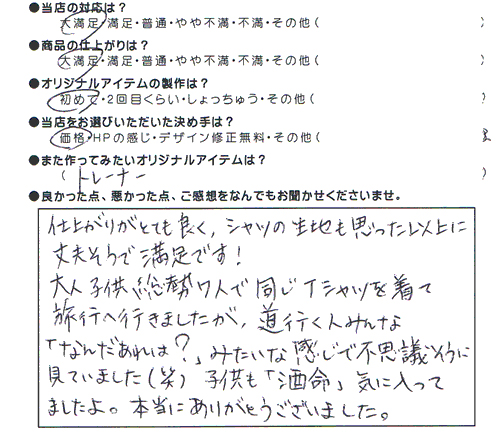 ●当店の対応は?
大満足・満足・普通・やや不満・不満・その他( )
●商品の仕上がりは?
大満足・満足・普通・やや不満・不満・その他( )
●オリジナルアイテムの製作は?
初めて・2回目くらい・しょっちゅう・その他( )
●当店をお選びいただいた決め手は?
価格・HPの感じ・デザイン修正無料・その他(
●また作ってみたいオリジナルアイテムは?
( トレーナー )
●良かった点、悪かった点、ご感想をなんでもお聞かせくださいませ。
仕上がりがとても良く,シャツの生地も思った以上に
丈夫そうで満足です!
大人子供総勢7人で同じTシャツを着て
旅行へ行きましたが,道行く人みんな
「なんだあれは?」みたいな感じで不思議そうに
見ていました(笑) 子供も「酒命」気に入って
ましたよ。本当にありがとうございました。